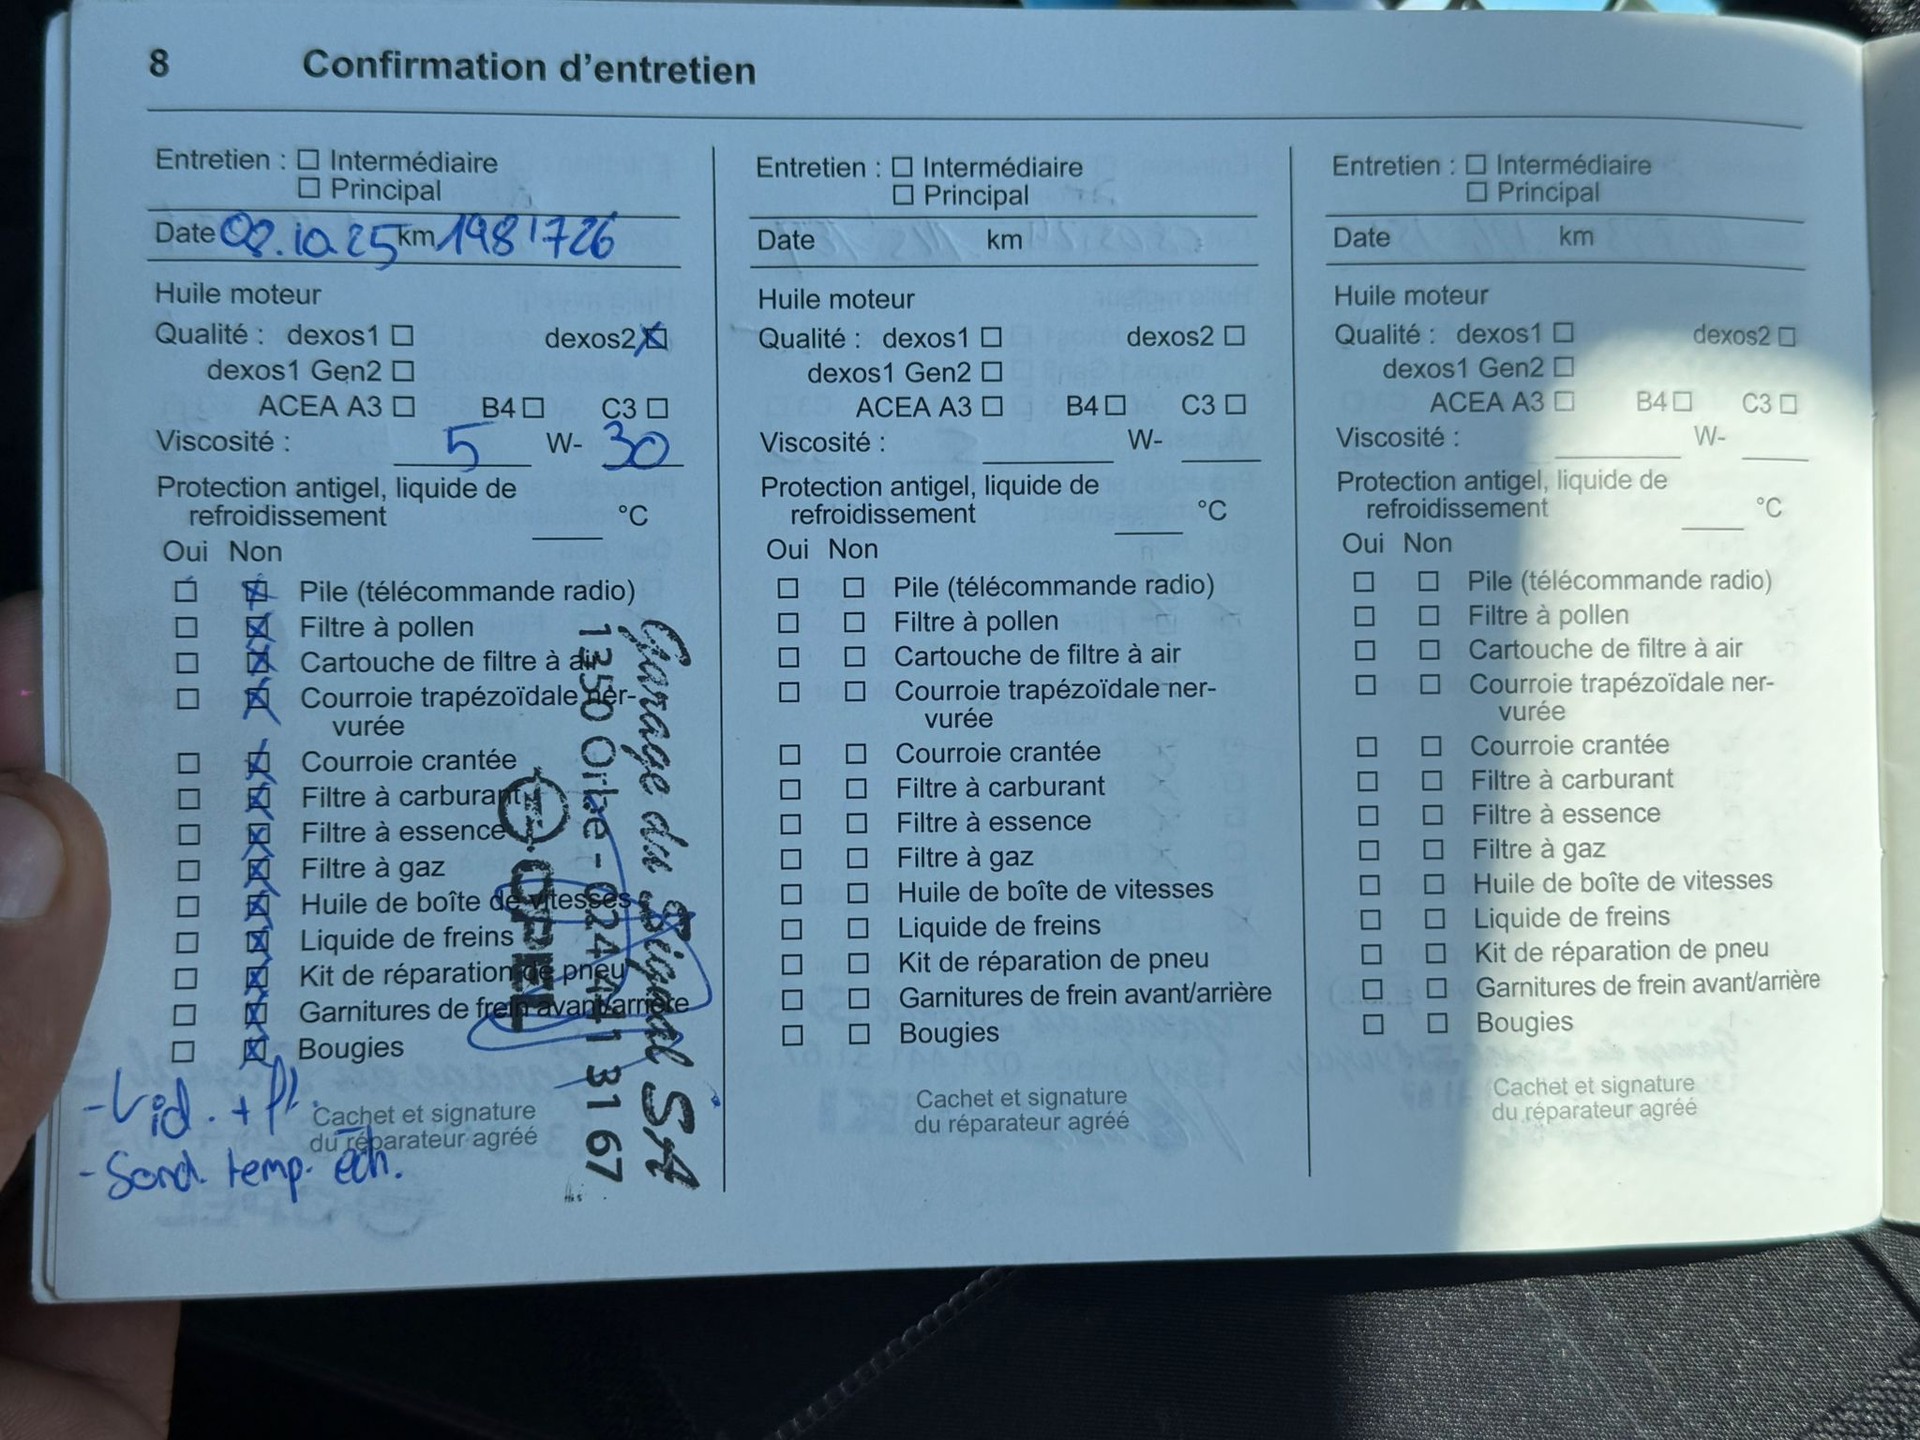 8 Confirmation d'entretien
Entretien : ☐ Intermédiaire
☐ Principal
Date 02.10.25 km 198'726
Huile moteur
Qualité : dexos1 ☐ dexos2 ☒
dexos1 Gen2 ☐
ACEA A3 ☐ B4 ☐ C3 ☐
Viscosité : 5 W- 30
Protection antigel, liquide de
refroidissement ____ °C
Oui Non
☐ ☒ Pile (télécommande radio)
☐ ☒ Filtre à pollen
☐ ☒ Cartouche de filtre à air
☐ ☒ Courroie trapézoïdale ner-
vurée
☐ ☒ Courroie crantée
☐ ☒ Filtre à carburant
☐ ☒ Filtre à essence
☐ ☒ Filtre à gaz
☐ ☒ Huile de boîte de vitesses
☐ ☒ Liquide de freins
☐ ☒ Kit de réparation de pneu
☐ ☒ Garnitures de frein avant/arrière
☐ ☒ Bougies
- Vid. + fl.
- Sond. temp. éch.
Cachet et signature
du réparateur agréé
Garage du Signal SA
1350 Orbe - 024 441 31 67
OPEL
Entretien : ☐ Intermédiaire
☐ Principal
Date km
Huile moteur
Qualité : dexos1 ☐ dexos2 ☐
dexos1 Gen2 ☐
ACEA A3 ☐ B4 ☐ C3 ☐
Viscosité : ____ W- ____
Protection antigel, liquide de
refroidissement ____ °C
Oui Non
☐ ☐ Pile (télécommande radio)
☐ ☐ Filtre à pollen
☐ ☐ Cartouche de filtre à air
☐ ☐ Courroie trapézoïdale ner-
vurée
☐ ☐ Courroie crantée
☐ ☐ Filtre à carburant
☐ ☐ Filtre à essence
☐ ☐ Filtre à gaz
☐ ☐ Huile de boîte de vitesses
☐ ☐ Liquide de freins
☐ ☐ Kit de réparation de pneu
☐ ☐ Garnitures de frein avant/arrière
☐ ☐ Bougies
Cachet et signature
du réparateur agréé
Entretien : ☐ Intermédiaire
☐ Principal
Date km
Huile moteur
Qualité : dexos1 ☐ dexos2 ☐
dexos1 Gen2 ☐
ACEA A3 ☐ B4 ☐ C3 ☐
Viscosité : ____ W- ____
Protection antigel, liquide de
refroidissement ____ °C
Oui Non
☐ ☐ Pile (télécommande radio)
☐ ☐ Filtre à pollen
☐ ☐ Cartouche de filtre à air
☐ ☐ Courroie trapézoïdale ner-
vurée
☐ ☐ Courroie crantée
☐ ☐ Filtre à carburant
☐ ☐ Filtre à essence
☐ ☐ Filtre à gaz
☐ ☐ Huile de boîte de vitesses
☐ ☐ Liquide de freins
☐ ☐ Kit de réparation de pneu
☐ ☐ Garnitures de frein avant/arrière
☐ ☐ Bougies
Cachet et signature
du réparateur agréé